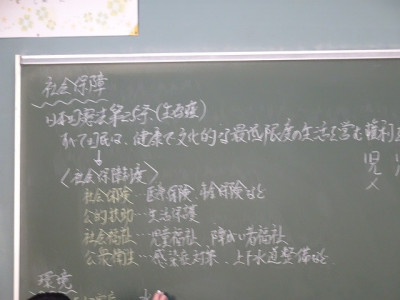 社会保障
日本国憲法第25条(生存権)
すべて国民は、健康で文化的な最低限度の生活を営む権利を
↓
〈社会保障制度〉
社会保険…医療保険、年金保険など
公的扶助…生活保護
社会福祉…児童福祉、障がい者福祉
公衆衛生…感染症対策、上下水道整備など
環境
児